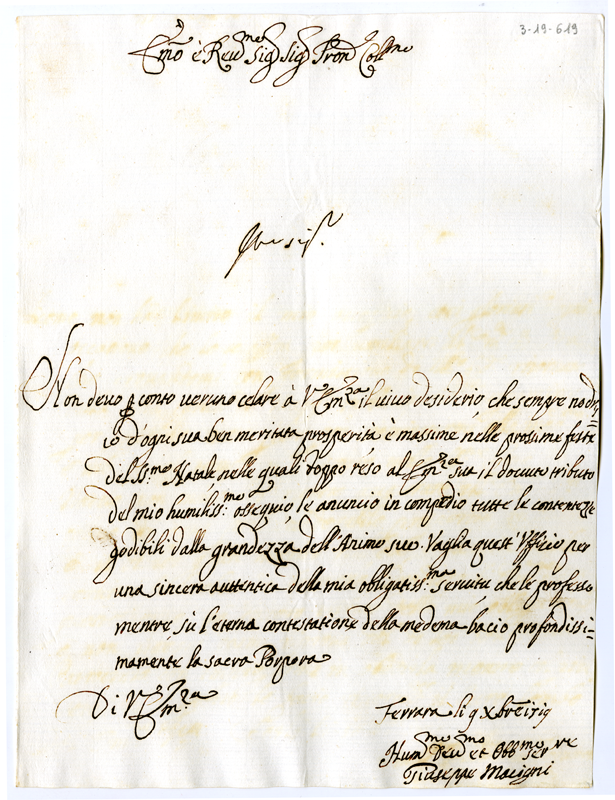 3-19-619
Emo è Reumo Sig Sig Pron Collmo
Non deuo p conto ueruno celare à V Emza il uiuo desiderio, che sempre nodri=
io d'ogni sua ben meritata prosperità è massime nelle prosime feste
del SS:mo Natale nelle quali doppo reso al Emza sua il douuto tributo
del mio humiliss:mo ossequio le anuncio in compedio tutte le contentezze
godibili dalla grandezza dell'Animo suo. Vaglia quest Vfficio per
una sincera auttentica della mia obligatiss:ma seruitù che le professo
mentre sù l'eterna contestatione della medema bacio profondissi=
mamente la sacra Porpora
Di V Emza
Ferrara li 9 Xbre
Hummo Deumo et Obbmo serre
Giuseppe